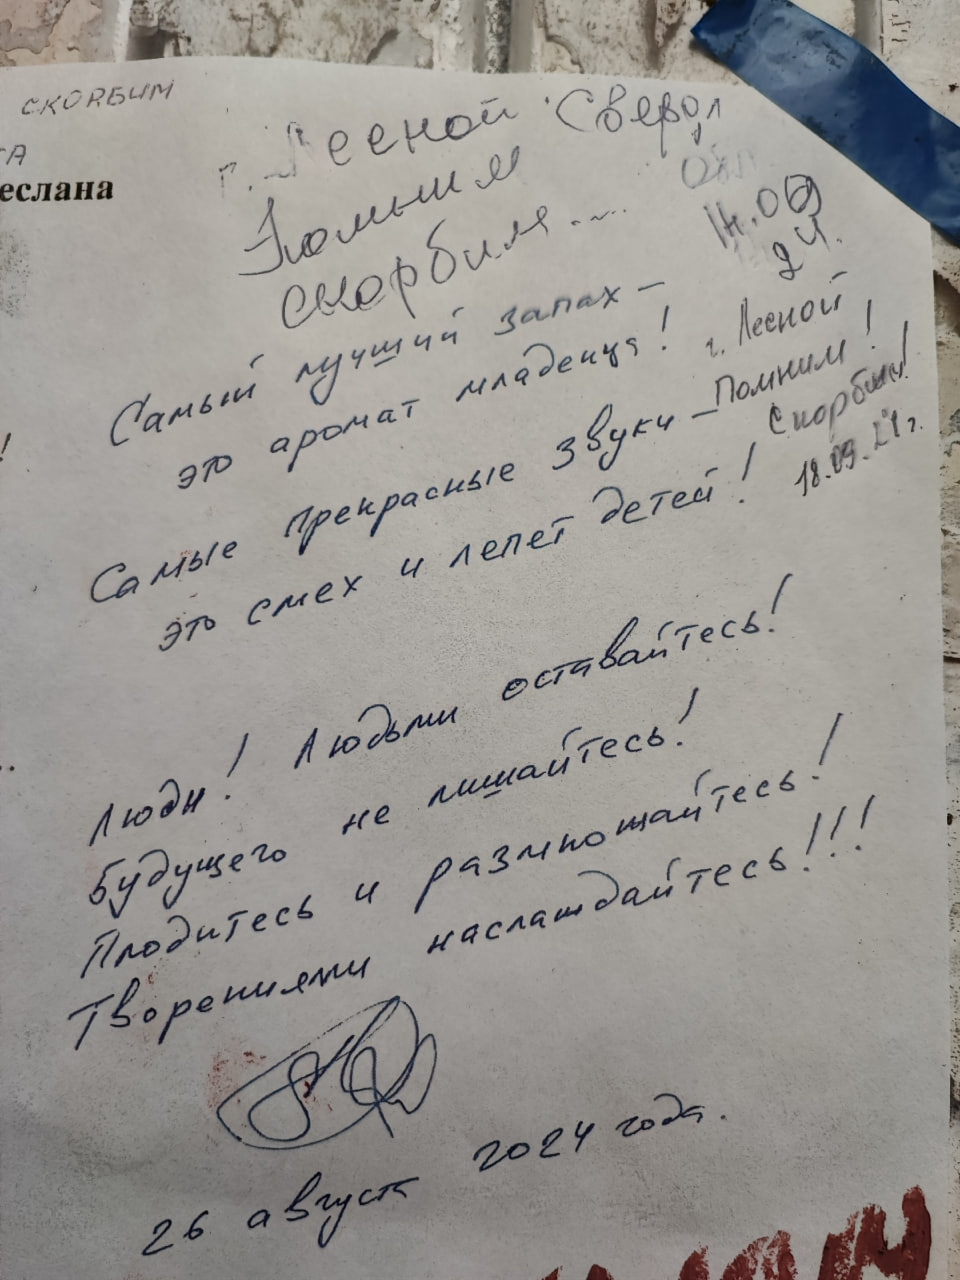 СКОРБИМ
еслана
г. Лесной Сверол
обл
Помним
скорбим...
14.09
24.
Самый лучший запах –
это аромат младенца!
г. Лесной
Помним!
Скорбим!
18.09.24г.
Самые прекрасные звуки –
это смех и лепет детей!
Люди! Людьми оставайтесь!
Будущего не лишайтесь!
Плодитесь и размножайтесь!
Творениями наслаждайтесь!!!
26 августа 2024 года.